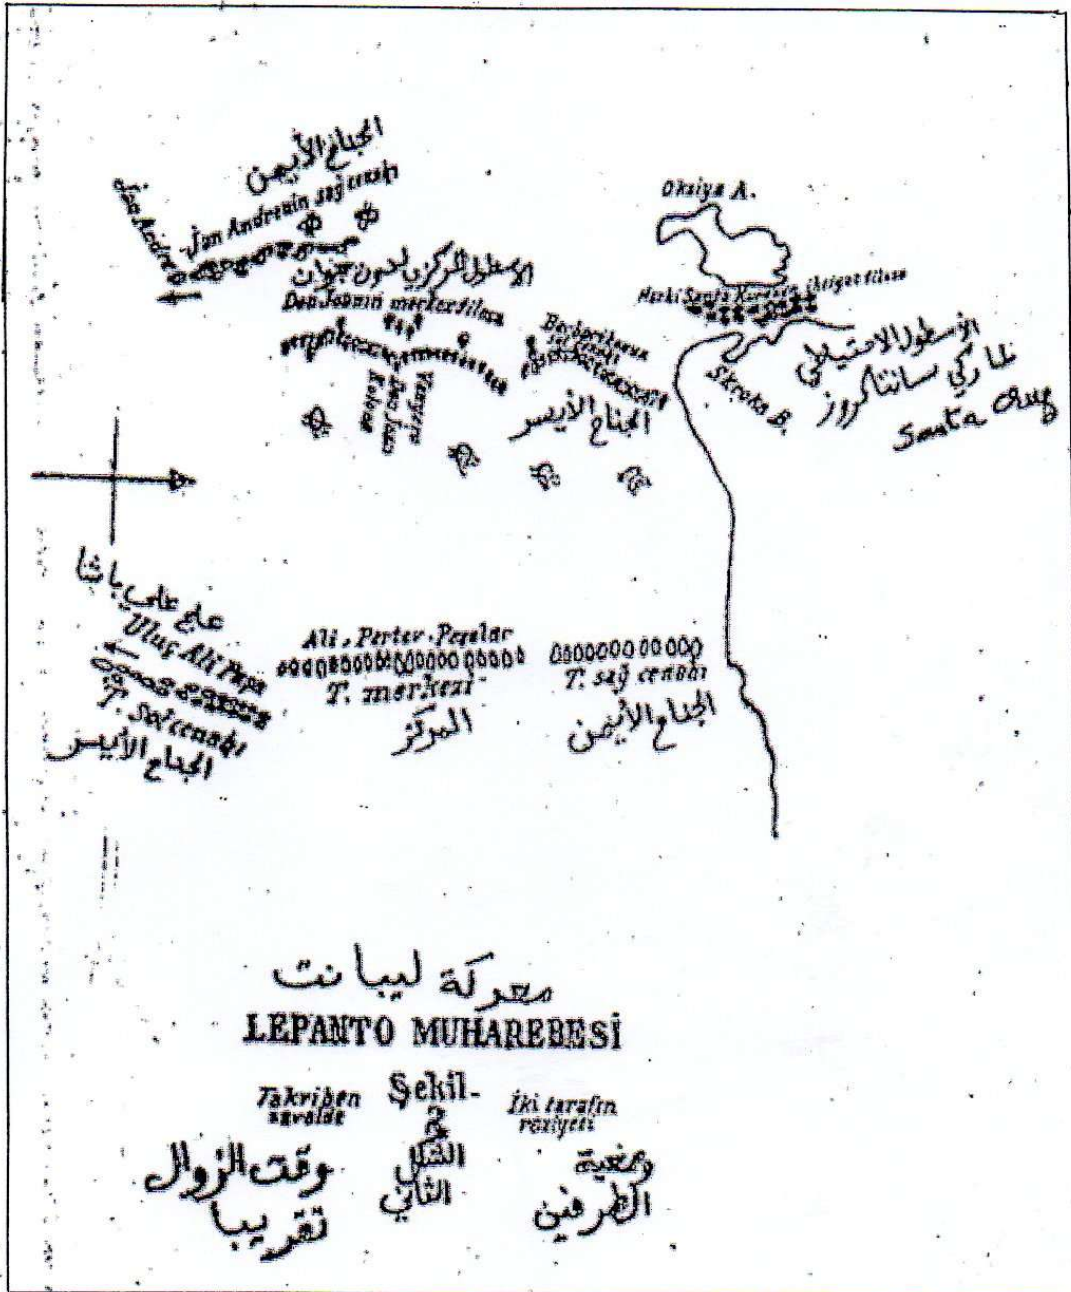 الجناح الأيمن
Jan Andrea
Jan Andrenin sağ cenahı
الأسطول المركزي لدون جوان
Don Johnın merkez filosu
Venyero
Don Juan
Kolona
sol cenahı
الجناح الأيسر
Oksiya A.
Marki Santa Kruzun ihtiyat filosu
Skrofa B.
الأسطول الاحتياطي
لماركي سانتاكروز
Santa Cruz
علج علي باشا
Uluç Ali Paşa
T. Sol cenahı
الجناح الأيسر
Ali, Pertev Paşalar
T. merkezi
المركز
T. sağ cenahı
الجناح الأيمن
معركة ليبانت
LEPANTO MUHAREBESİ
Takriben
zevalde
Şekil-
2
İki tarafın
vaziyeti
وقت الزوال
تقريبا
الشكل
الثاني
وضعية
الطرفين